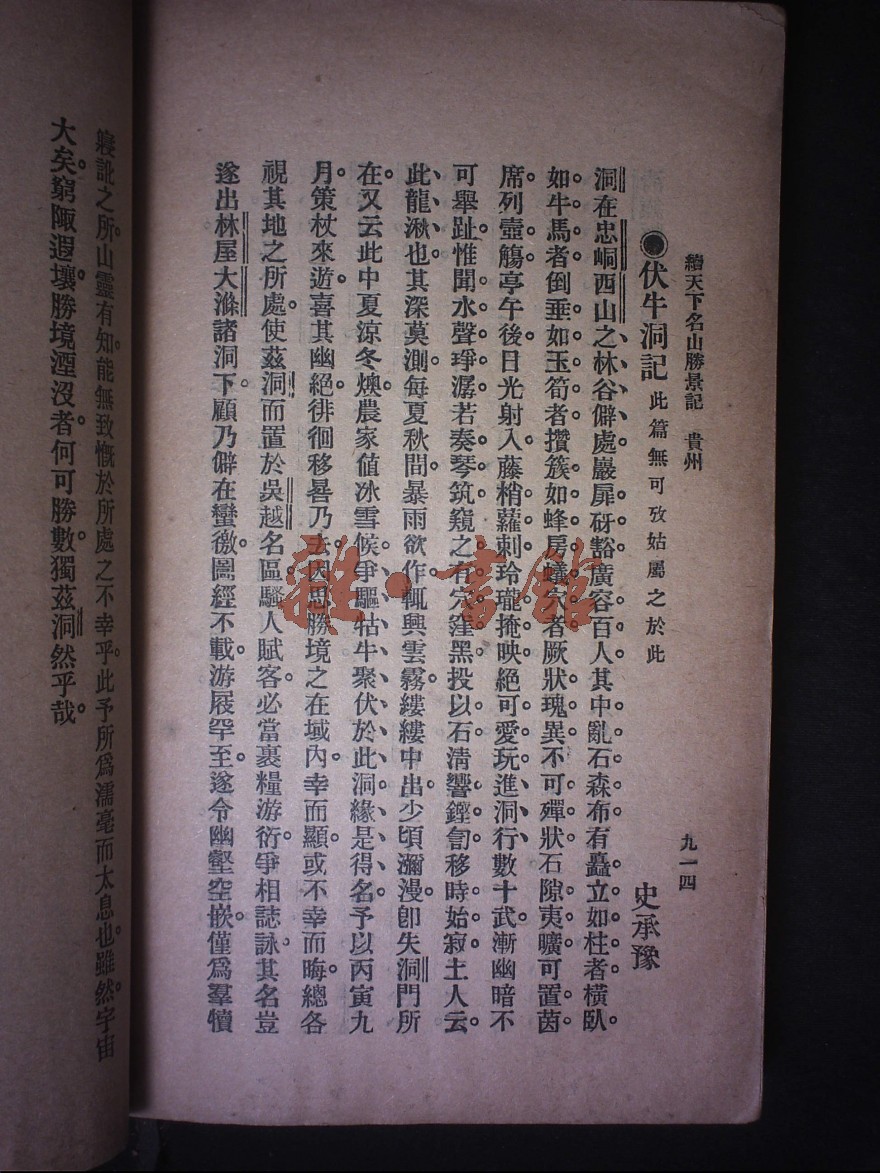 續天下名山勝景記　貴州　九一四
●伏牛洞記　此篇無可攷姑屬之於此　史承豫
洞在忠峒西山之林谷僻處巖扉砑豁廣容百人其中亂石森布有矗立如柱者橫臥
如牛馬者倒垂如玉筍者攢簇如蜂房蟻穴者厥狀瑰異不可殫狀石隙夷曠可置茵
席列壺觴亭午後日光射入藤梢蘿刺玲瓏掩映絕可愛玩進洞行數十武漸幽暗不
可舉趾惟聞水聲琤潺若奏琴筑窺之有穴窪黑投以石清響鏗訇移時始寂土人云
此龍湫也其深莫測每夏秋間暴雨欲作輒興雲霧縷縷中出少頃瀰漫卽失洞門所
在又云此中夏涼冬燠農家值冰雪候爭驅牯牛聚伏於此洞緣是得名予以丙寅九
月策杖來遊喜其幽絕徘徊移晷乃去因思勝境之在域內幸而顯或不幸而晦總各
視其地之所處使茲洞而置於吳越名區騷人賦客必當裹糧游衍爭相誌詠其名豈
遂出林屋大滌諸洞下顧乃僻在蠻徼圖經不載游屐罕至遂令幽壑空嵌僅爲羣犢
寢訛之所山靈有知能無致慨於所處之不幸乎此予所爲濡毫而太息也雖然宇宙
大矣窮陬遐壤勝境湮沒者何可勝數獨茲洞然乎哉
雜·書館